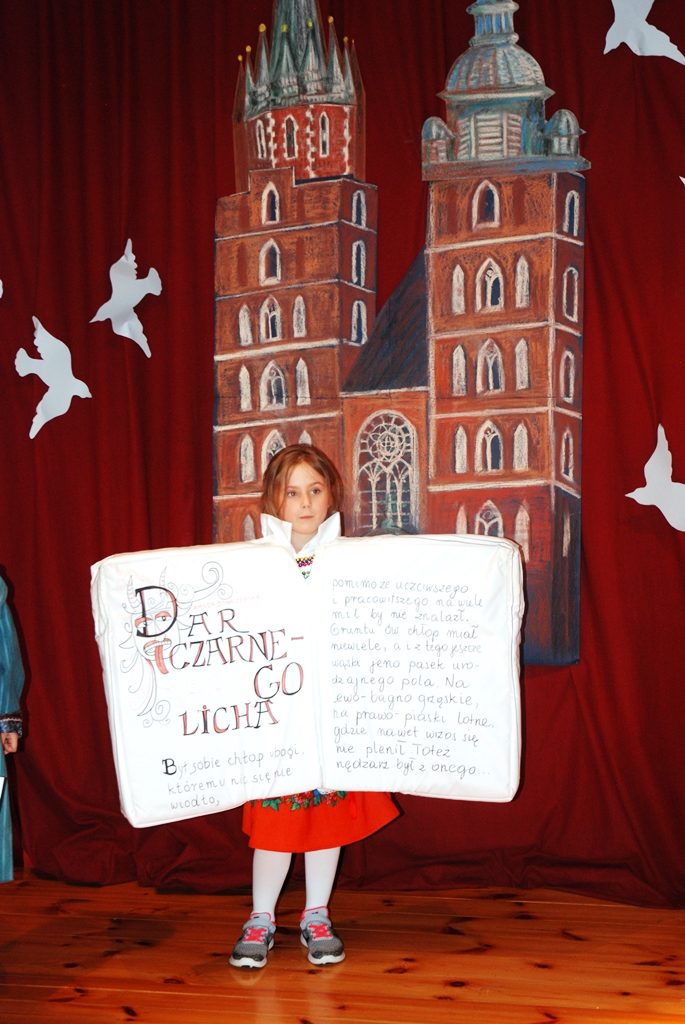 DAR
CZARNE-
GO
LICHA
Był sobie chłop ubogi,
któremu nic się nie
wiodło,
pomimo że uczciwszego
i pracowitszego na wiele
mil by nie znalazł.
Gruntu ów chłop miał
niewiele, a i z tego jeszcze
wąski jeno pasek uro-
dzajnego pola. Na
lewo-bagno grząskie,
na prawo-piaski lotne,
gdzie nawet wrzos się
nie plenił Toteż
nędzarz był z onego...